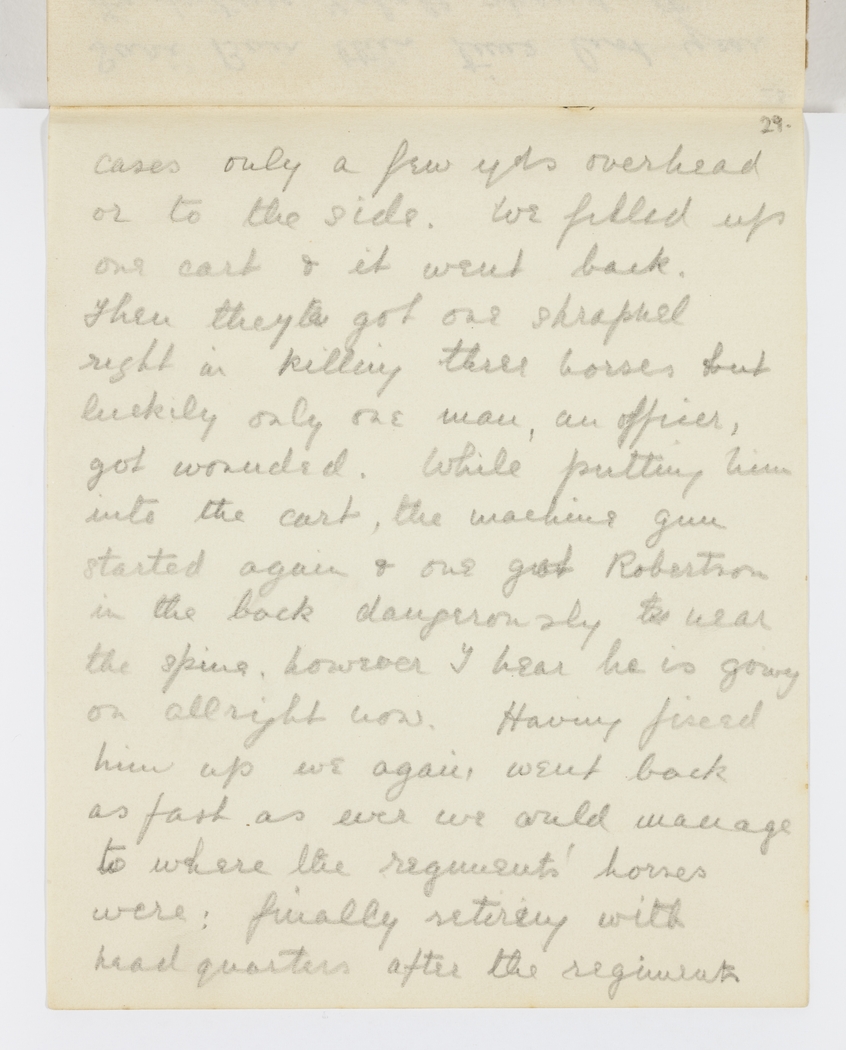 29.
cases only a few yds overhead
or to the side. We filled up
one cart & it went back.
Then they got one shrapnel
right in killing three horses but
luckily only one man, an officer,
got wounded. While putting him
into the cart, the machine gun
started again & one got Robertson
in the back dangerously near
the spine. however I hear he is going
on allright now. Having fixed
him up we again went back
as fast as ever we could manage
to where the regiments' horses
were; finally retiring with
head quarters after the regiments